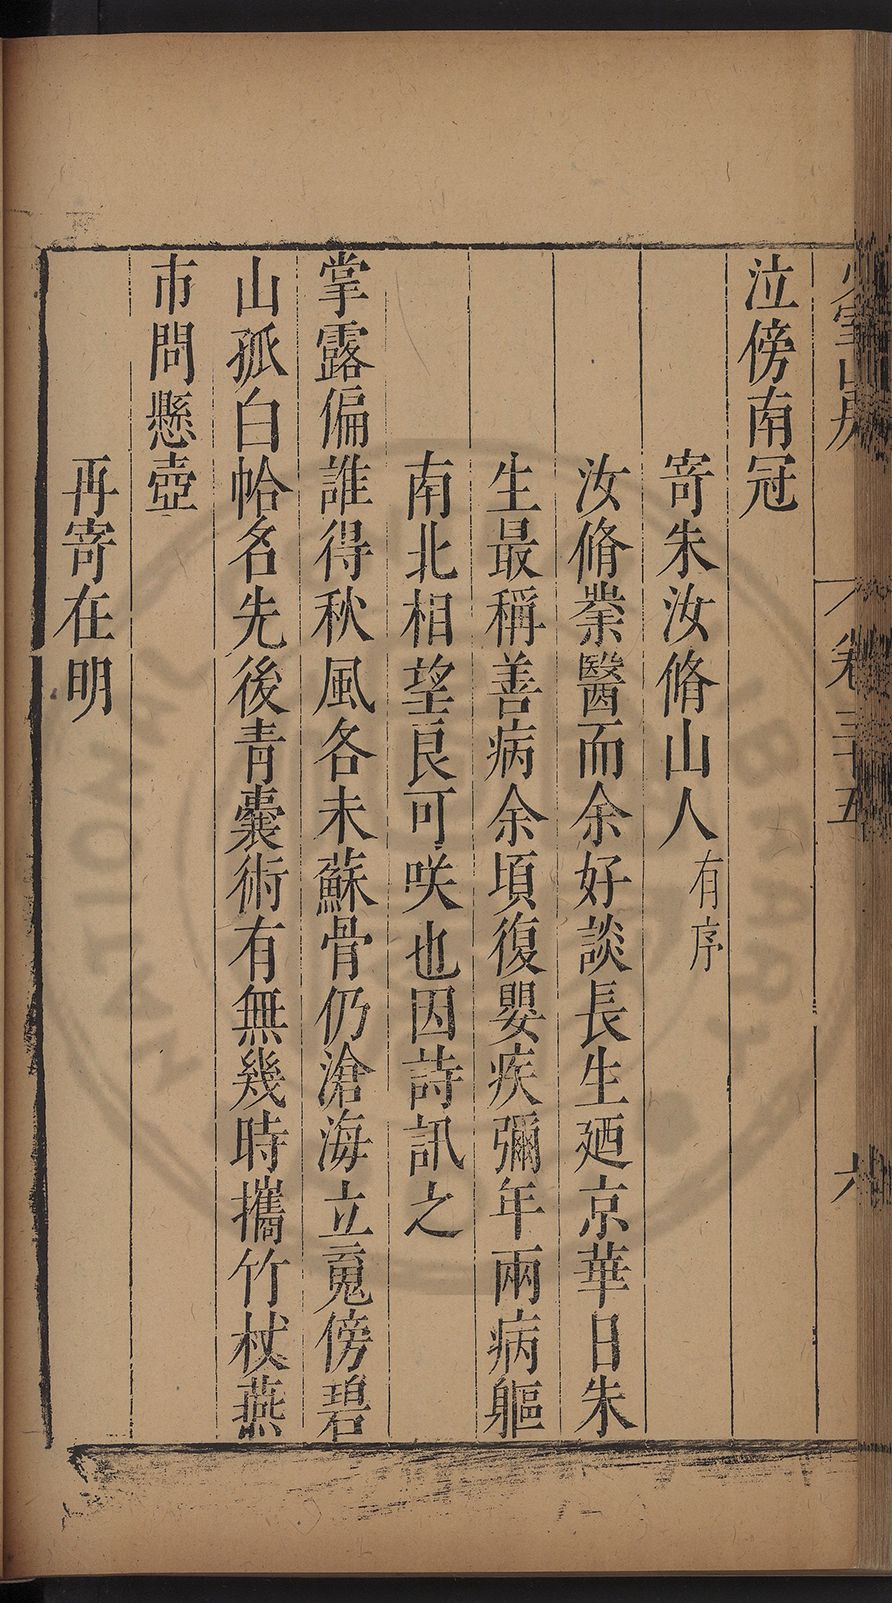 泣傍南冠
寄朱汝脩山人有序
汝脩業醫而余好談長生廼京華日朱
生最稱善病余頃復嬰疾彌年兩病軀
南北相望良可咲也因詩訊之
掌露偏誰得秋風各未蘇骨仍滄海立䰟傍碧
山孤白帢名先後青囊術有無幾時攜竹杖燕
市問懸壺
再寄在明